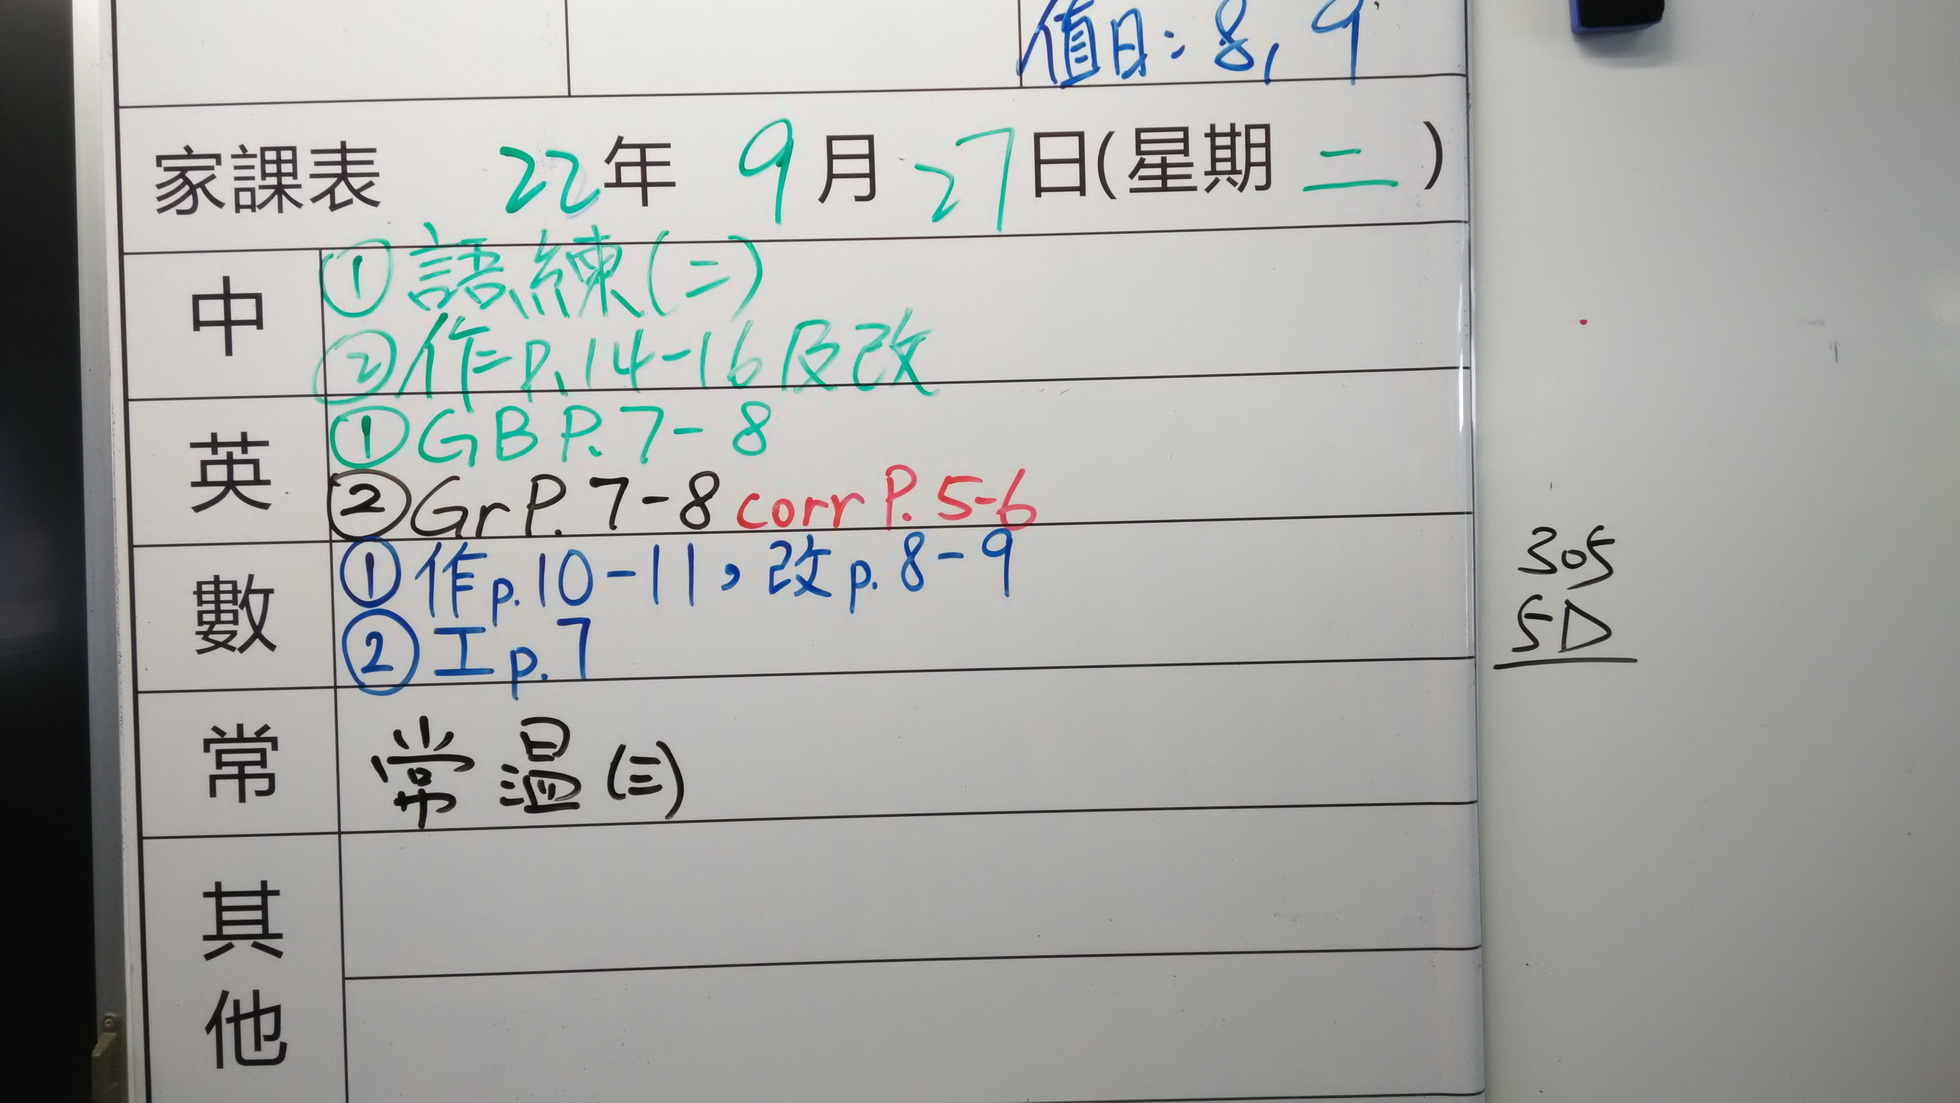 值日：8, 9
家課表 22年 9月 27日(星期 二)
中
①語練(二)
②作p.14-16及改
英
①GB P.7-8
②Gr P.7-8 corr P.5-6
數
①作p.10-11，改p.8-9
②工p.7
常
常溫(三)
其
他
305
5D